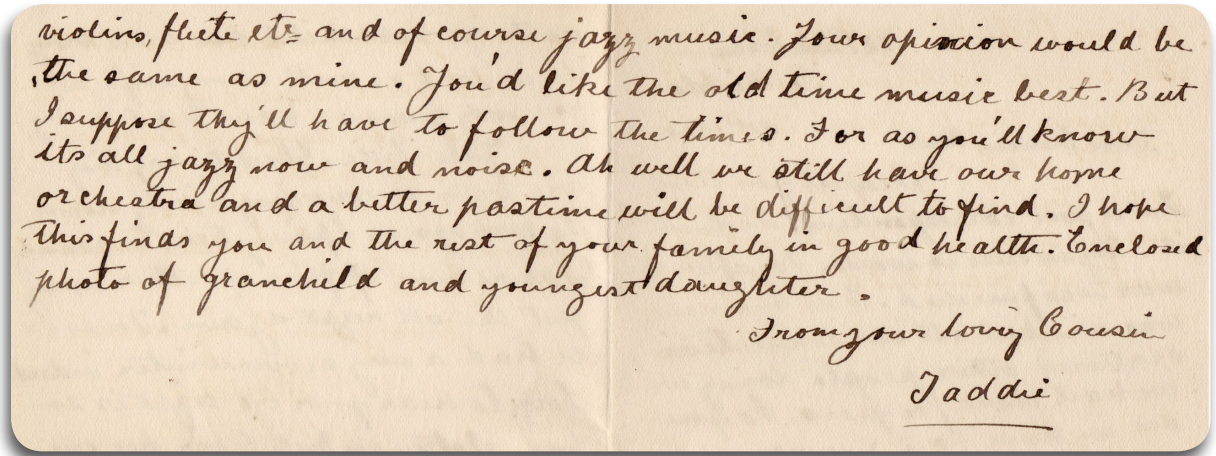 violins, flute etc and of course jazz music. Your opinion would be
the same as mine. You'd like the old time music best. But
I suppose they'll have to follow the times. For as you'll know
its all jazz now and noise. Ah well we still have our home
orchestra and a better pastime will be difficult to find. I hope
this finds you and the rest of your family in good health. Enclosed
photo of granchild and youngest daughter.
From your loving Cousin
Taddie